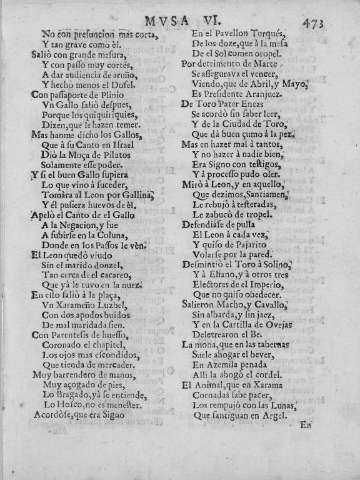 MVSA VI.
473
No con presuncion mas corta,
Y tan grave como èl.
Saliò con grande mesura,
Y con passo muy cortés,
A dar audiencia de
Y hecho menos el Dosel.
Con passaporte de Plinio
Vn Gallo saliò despues,
Porque los quiquiriquies,
Dizen, que le hazen temer.
Mas hanme dicho los Gallos,
Que à su Canto en Israel
Diò la Moça de Pilatos
Solamente esse poder.
Y si el buen Gallo supiera
Lo que vino à suceder,
Tomàra al Leon por Gallina,
Y èl pusiera huevos de èl.
Apelò el Canto de el Gallo
A la Negacion, y fue
A subirse en la Coluna,
Donde en los Passos le vèn.
El Leon quedò viudo
Sin el marido donzel,
Tan cerca de el cacareo,
Que yà le tuvo en la nuez.
En esto saliò à la plaça,
Vn Xarameño Luzbel,
Con dos apodos buidos
De mal maridada sien.
Con Parentesis de huesso,
Coronado el chapitel,
Los ojos mas escondidos,
Que tienda de mercader.
Muy barrendero de manos,
Muy açogado de pies,
Lo Bragado, yà se entiende,
Lo Hosco, no es menester.
Acordòse, que era Signo
En el Pavellon Turqués,
De los doze, que à la mesa
De el Sol comen oropel.
Por detrimento de Marte
Se assegurava el vencer,
Viendo, que de Abril, y Mayo,
Es Presidente Aranjuez.
De Toro Pater Eneas
Se acordò sin saber leer,
Y de la Ciudad de Toro,
Que dà buen çumo à la pez.
Mas en hazer mal à tantos,
Y no hazer à nadie bien,
Era Signo con testigos,
Y à processo pudo oler.
Mirò à Leon, y en aquello,
Que dezimos, Santiamen,
Le rebujò à testeradas,
Le zabucò de tropel.
Defendiase de pulla
El Leon à cada vez,
Y quiso de Pajarito
Volarse por la pared.
Desmintiò el Toro à Solino,
Y à Eliano, y à otros tres
Electores de el Imperio,
Que no quiso obedecer.
Salieron Macho, y Cavallo,
Sin albarda, y sin jaez,
Y en la Cartilla de Ovejas
Deletrearon el Be.
La mona, que en las tabernas
Suele ahogar el bever,
En Azemila penada
Alli la ahogò el cordel.
El Animal, que en Xarama
Cornadas sabe pacer,
Los rempujò con las Lunas,
Que santiguan en Argel.
En